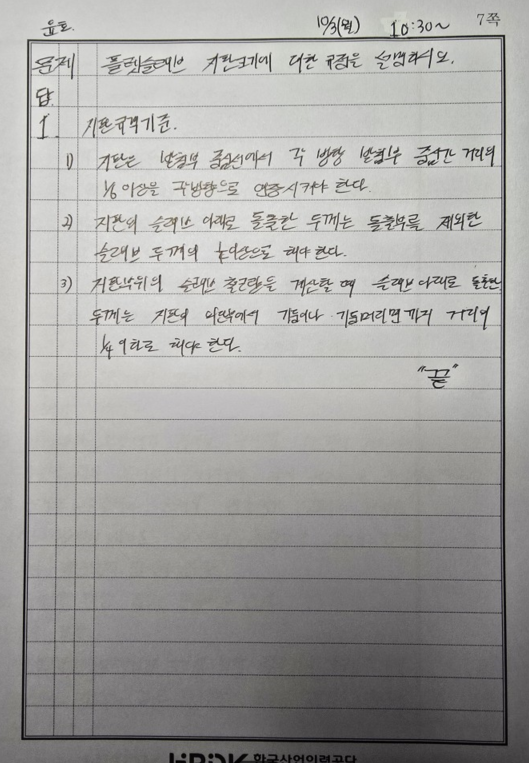 윤호.
10/3(월) 10:30~ 7쪽
문제 플랫슬래브 지판크기에 대한 규정을 설명하시오.
답
I. 지판규격기준.
1) 지판은 받침부 중심선에서 각 방향 받침부 중심간 거리의
1/6 이상을 각방향으로 연장시켜야 한다.
2) 지판의 슬래브 아래로 돌출한 두께는 돌출부를 제외한
슬래브 두께의 1/4이상으로 해야 한다.
3) 지판부위의 슬래브 철근량을 계산할 때 슬래브 아래로 돌출한
두께는 지판의 외단부에서 기둥이나 기둥머리면까지 거리의
1/4 이하로 해야 한다.
"끝"
한국산업인력공단